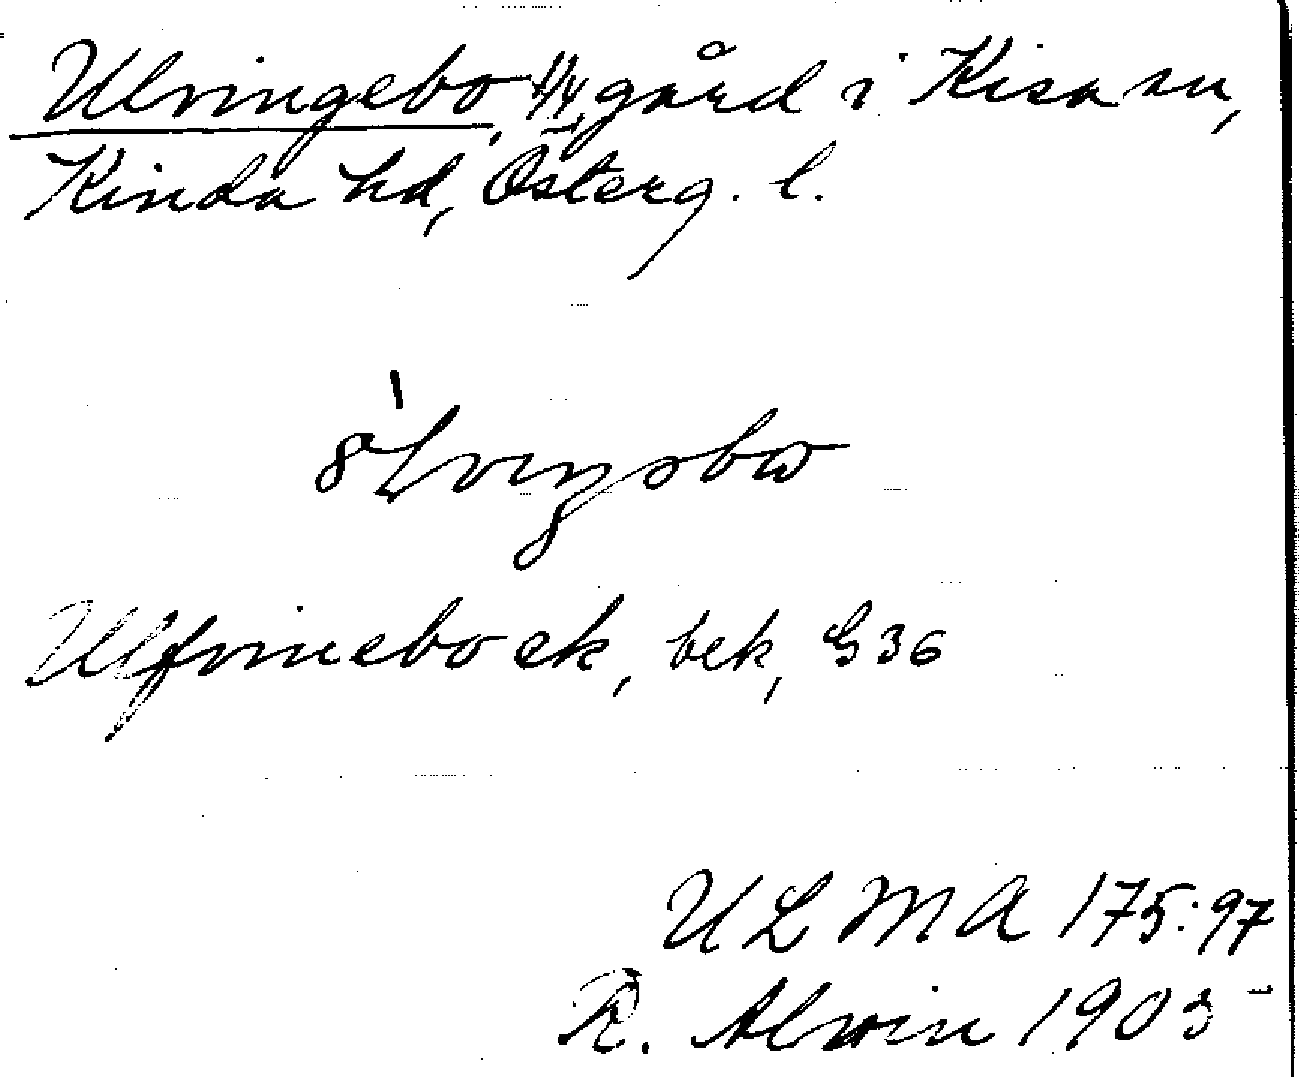 Ulvingebo, 1/4 gård i Kisa sn,
Kinda hd, Österg. l.
Ulfvinebo ek, bek, G 36
ULMA 175:97
R. Alwin 1903